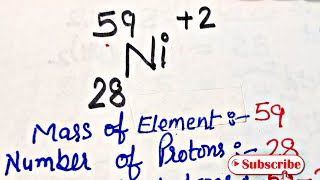 59 +2
Ni
28
Mass of Element :- 59
Number of Protons :- 28
Subscribe